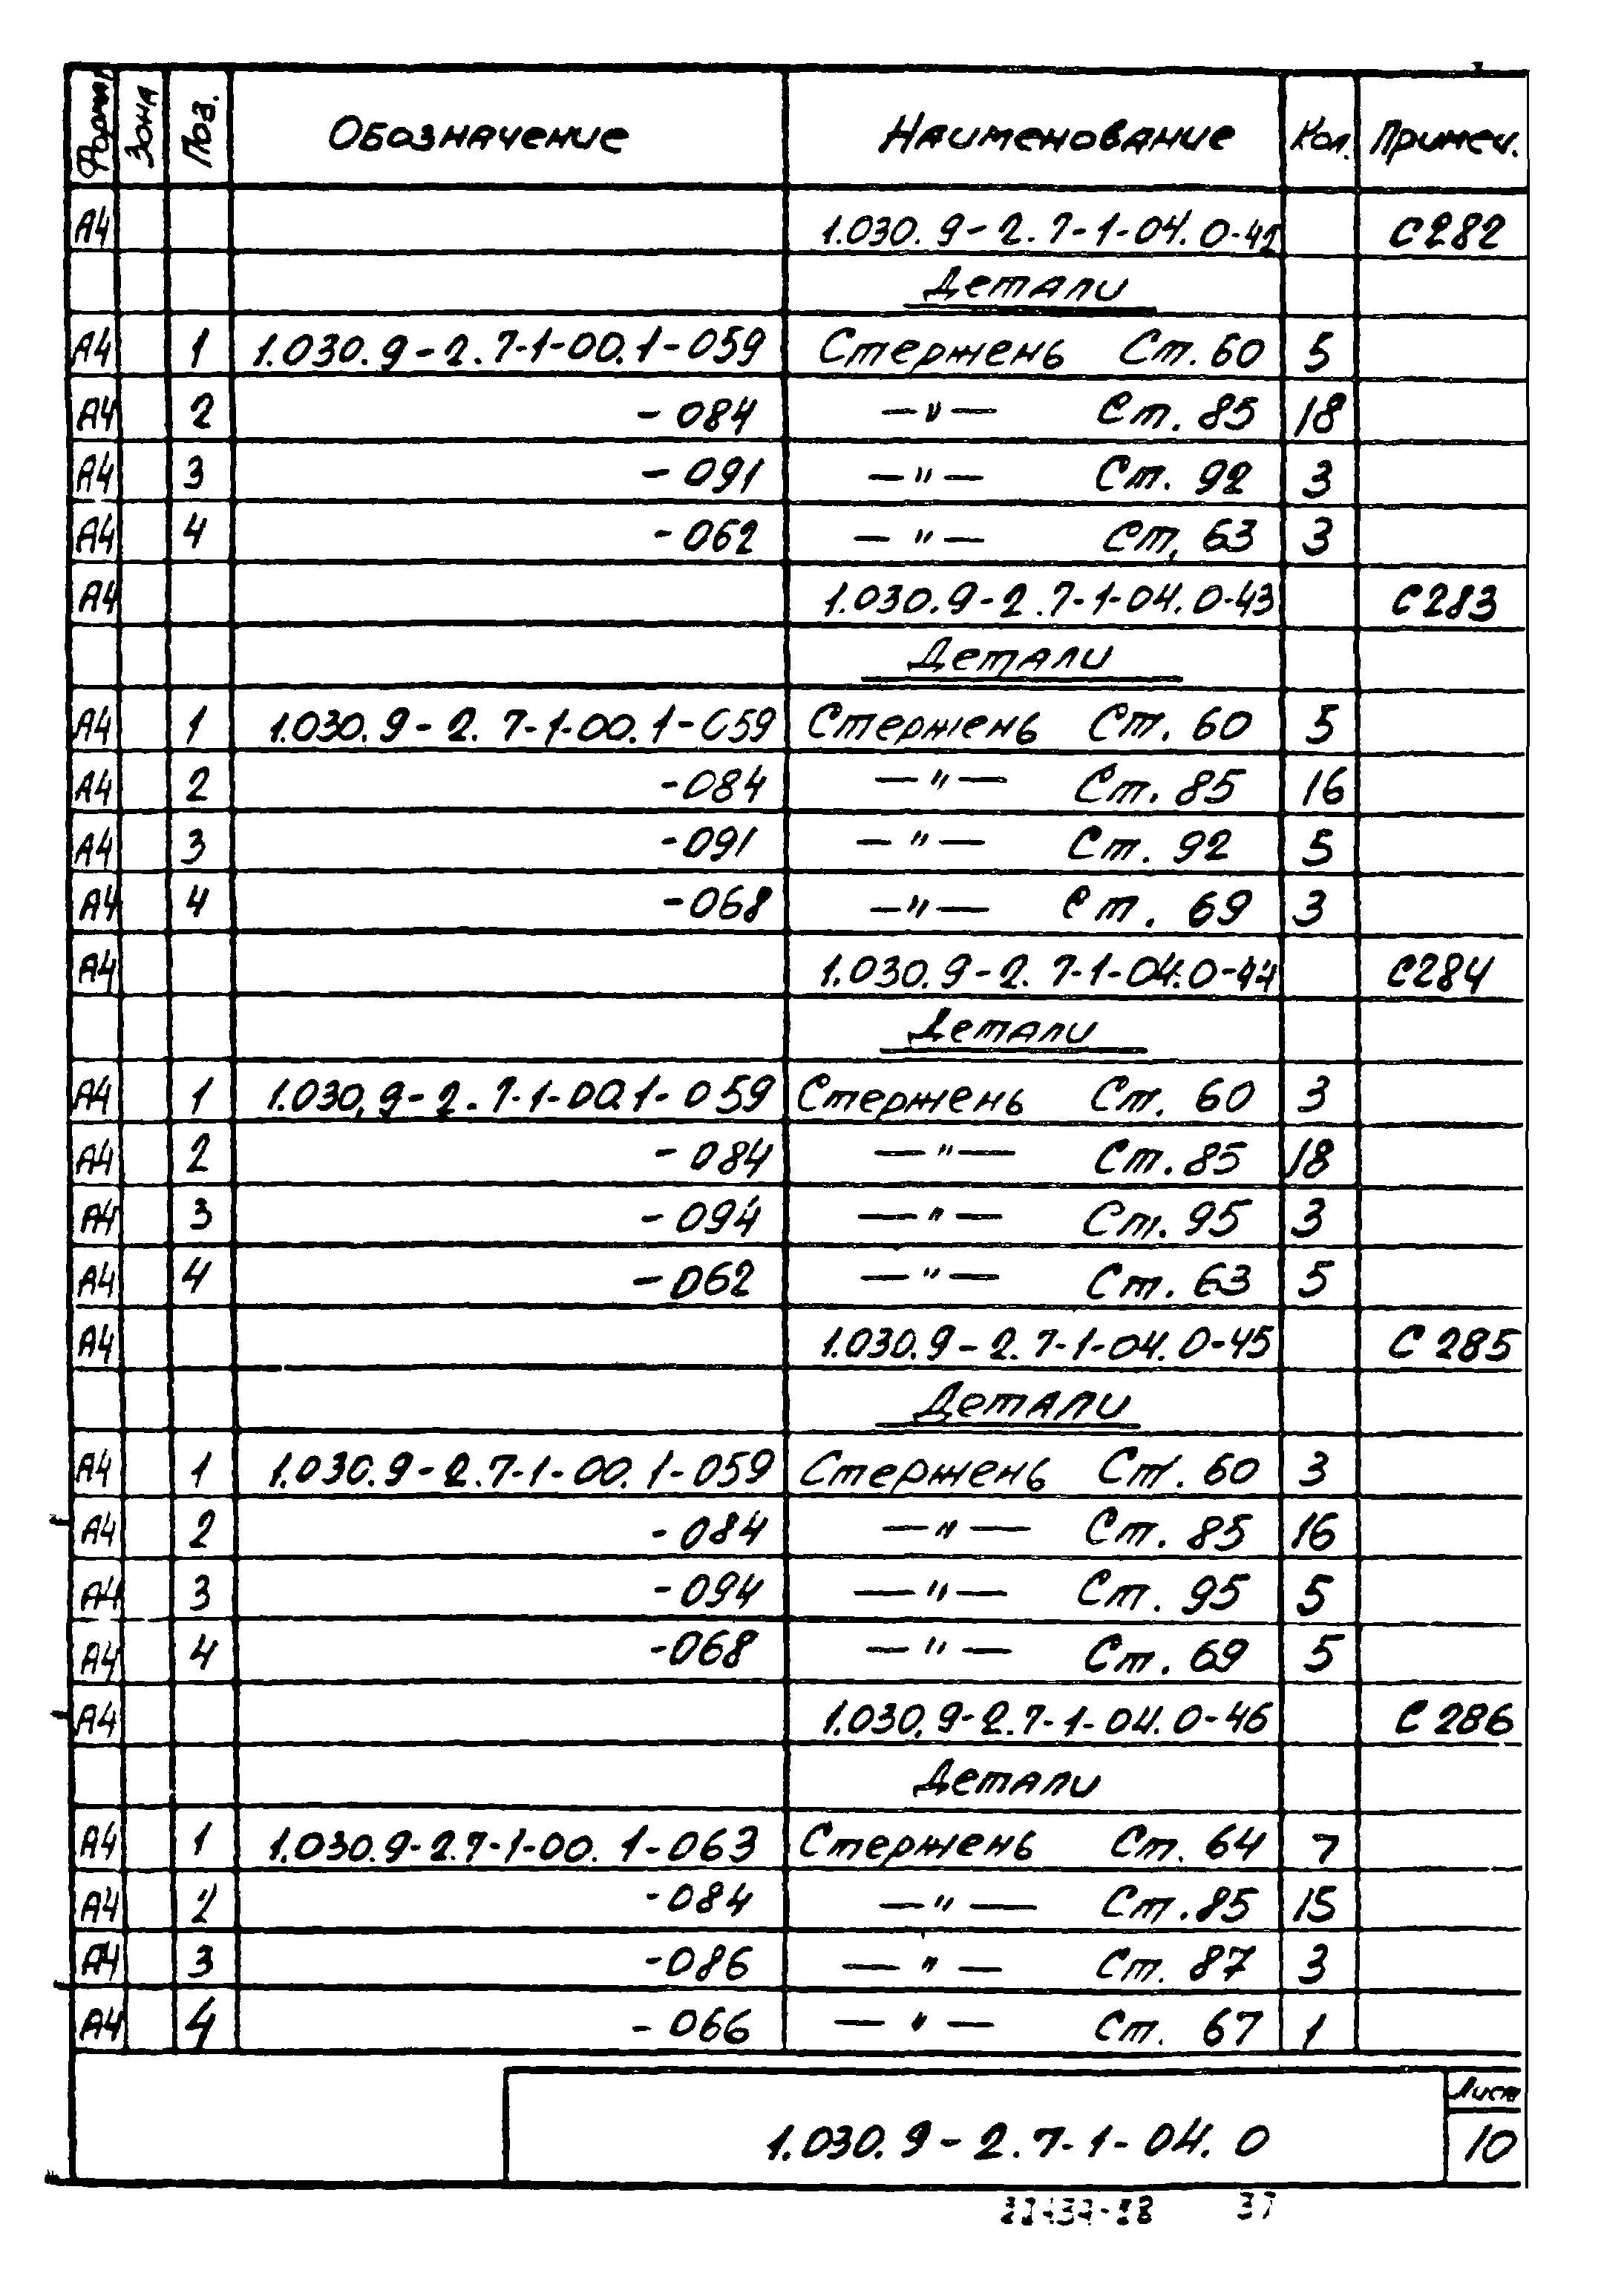 Форма Зона Поз. Обозначение Наименование Кол. Примеч.
А4 1.030.9-2.7-1-04.0-42 С282
Детали
А4 1 1.030.9-2.7-1-00.1-059 Стержень Ст.60 5
А4 2 -084 —"— Ст.85 18
А4 3 -091 —"— Ст.92 3
А4 4 -062 —"— Ст.63 3
А4 1.030.9-2.7-1-04.0-43 С283
Детали
А4 1 1.030.9-2.7-1-00.1-059 Стержень Ст.60 5
А4 2 -084 —"— Ст.85 16
А4 3 -091 —"— Ст.92 5
А4 4 -068 —"— Ст.69 3
А4 1.030.9-2.7-1-04.0-44 С284
Детали
А4 1 1.030.9-2.7-1-00.1-059 Стержень Ст.60 3
А4 2 -084 —"— Ст.85 18
А4 3 -094 —"— Ст.95 3
А4 4 -062 —"— Ст.63 5
А4 1.030.9-2.7-1-04.0-45 С285
Детали
А4 1 1.030.9-2.7-1-00.1-059 Стержень Ст.60 3
А4 2 -084 —"— Ст.85 16
А4 3 -094 —"— Ст.95 5
А4 4 -068 —"— Ст.69 5
А4 1.030.9-2.7-1-04.0-46 С286
Детали
А4 1 1.030.9-2.7-1-00.1-063 Стержень Ст.64 7
А4 2 -084 —"— Ст.85 15
А4 3 -086 —"— Ст.87 3
А4 4 -066 —"— Ст.67 1
1.030.9-2.7-1-04.0
Лист
10
37